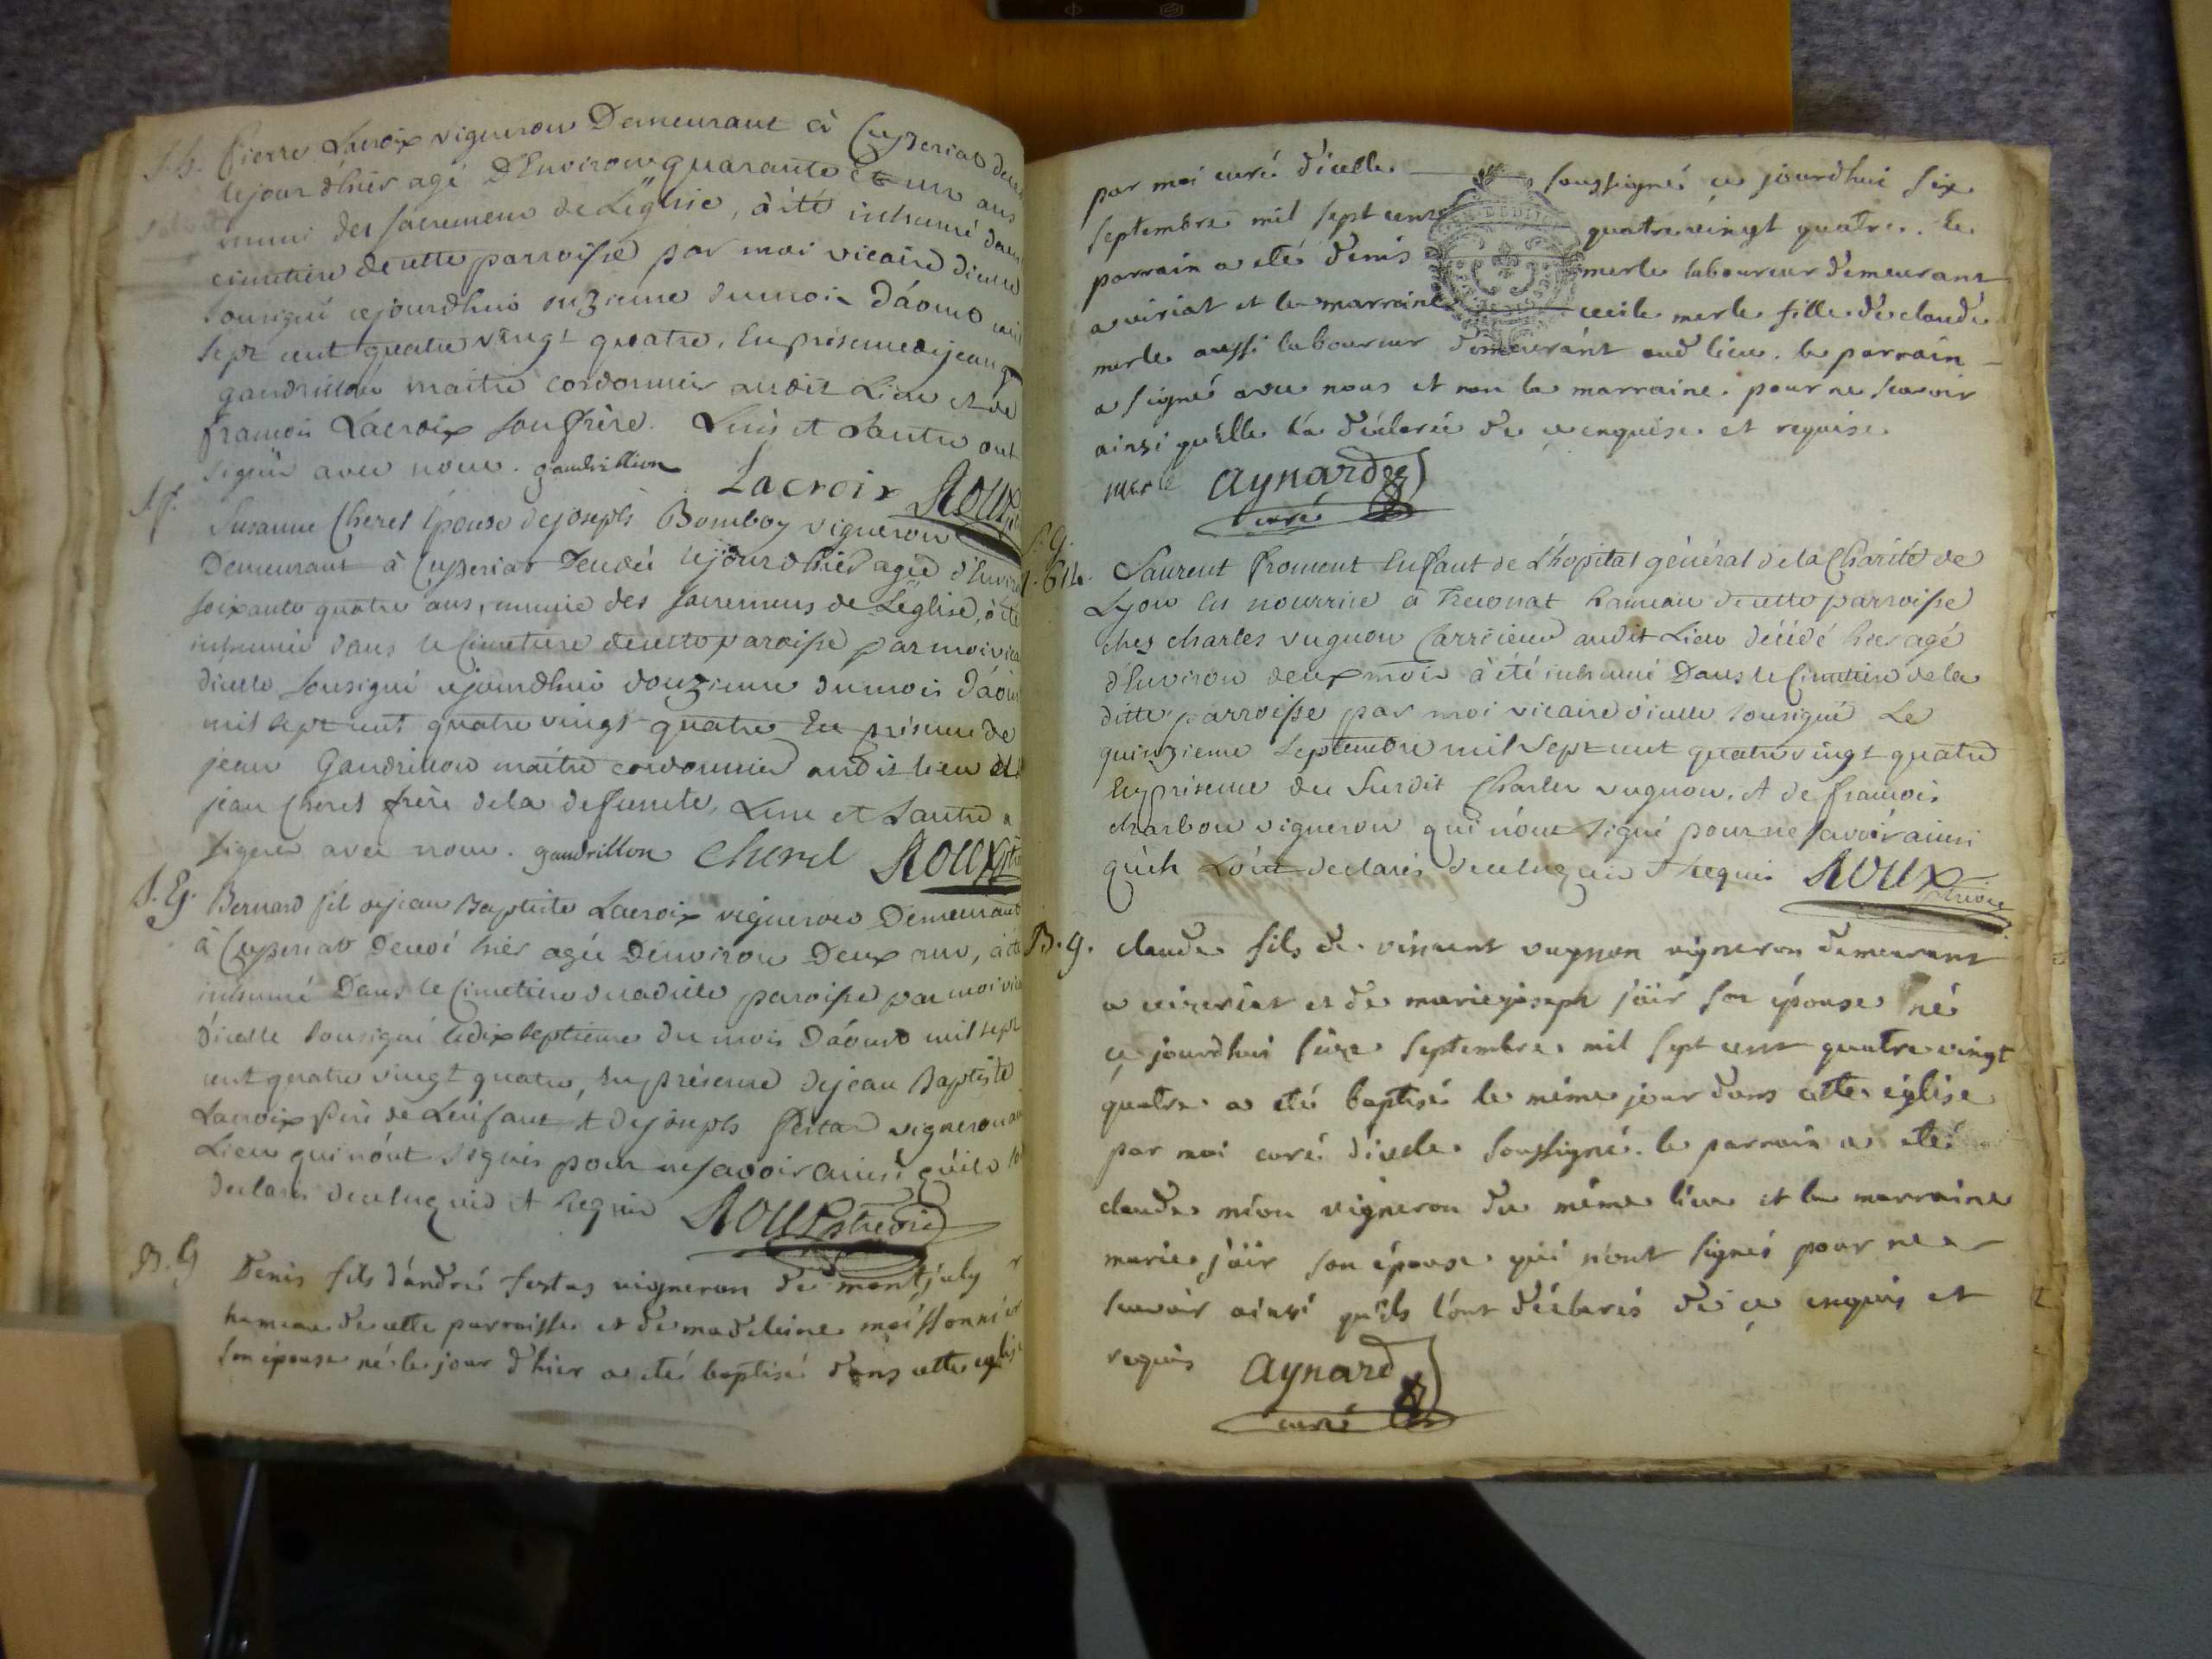 S. h. Pierre Lacroix vigneron Demeurant à Cuyseriat
le jour dhier agé DEnviron quarante et un ans
muni des sacremens de Léglise, à été inhumé dans
cimetiere de cette parroisse par moi vicaire dicelle
sousigné cejourdhuis onzieme du mois Dáoust mil
sept cent quatre vingt quatre, En présence de jean
gaudrillon maitre cordonnier audit Lieu et de
francois Lacroix son frère. Lun et Lautre ont
signés avec nous. gaudrillon Lacroix ROUX
S. f.
Susanne Cherel Epouse de joseph Bomboy vigneron
Demeurant à Cuyseriat Decedée le jour dhier agée d'Environ
soixante quatre ans, munie des sacremens de Léglise, à été
inhumée dans le Cimetiere de cette paroisse par moi
dicelle sousigné cejourdhuis douzieme du mois Dáoust
mil sept cent quatre vingt quatre En présence de
jean Gaudrillon maitre cordonnier audit lieu et
jean Cherel frère de la defuncte, Lun et Lautre
signés avec nous. gaudrillon Cherel ROUX
S. G. Bernard fils de jean Baptiste Lacroix vigneron Demeurant
à Cuyseriat Decedé hier agé Denviron Deux ans, à été
inhumé Dans le Cimetiere de ladite paroisse par moi
dicelle sousigné le dix septieme du mois Dáoust mil sept
cent quatre vingt quatre, En présence de jean Baptiste
Lacroix Père de Lenfant et de joseph vigneron
Lieu qui nónt signés pour ne savoir ainsi qúils
declarés de ce Enquis et Requis ROUX vicaire
B. G Denis fils dándré festas vigneron de montjuly
hameau de cette parroisse et de madeleine moissonnier
son épouse né le jour d'hier a eté baptisé dans cette eglise
par moi curé d'icelle soussigné ce jourdhui six
septembre mil sept cent quatrevingt quatre. le
parrain a eté denis merle laboureur demeurant
a viriat et la marraine cecile merle fille de claude
merle aussi laboureur demeurant aud lieu. le parrain
a signé avec nous et non la marraine pour ne scavoir
ainsi qu'elle l'a déclaré de ce enquise et requise
merle aynard
curé
S. G.
Laurent froment Enfant de L'hopital général de la Charité de
Lyon En nourrice à Treconat hameau de cette parroisse
ches charles vugnon audit Lieu décédé hier agé
d'Environ deux mois à été inhumé Dans le Cimetiere de la
ditte parroisse par moi vicaire dicelle sousigné Le
quinzieme septembre mil sept cent quatre vingt quatre
En présence du Susdit Charles vugnon, et de francois
charbon vigneron qui nónt signé pour ne savoir ainsi
qúils Lónt declarés de ce Enquis et Requis ROUX
vicaire
B. g. claude fils de vincent vugnon vigneron demeurant
a et de mariejoseph jair son épouse né
ce jourdhui seize septembre mil sept cent quatre vingt
quatre a eté baptisé le même jour dans cette église
par moi curé d'icelle soussigné. le parrain a eté
claude vigneron du même lieu et la marraine
marie jair son épouse qui n'ont signés pour ne
scavoir ainsi qu'ils l'ont déclarés de ce enquis et
requis aynard
curé